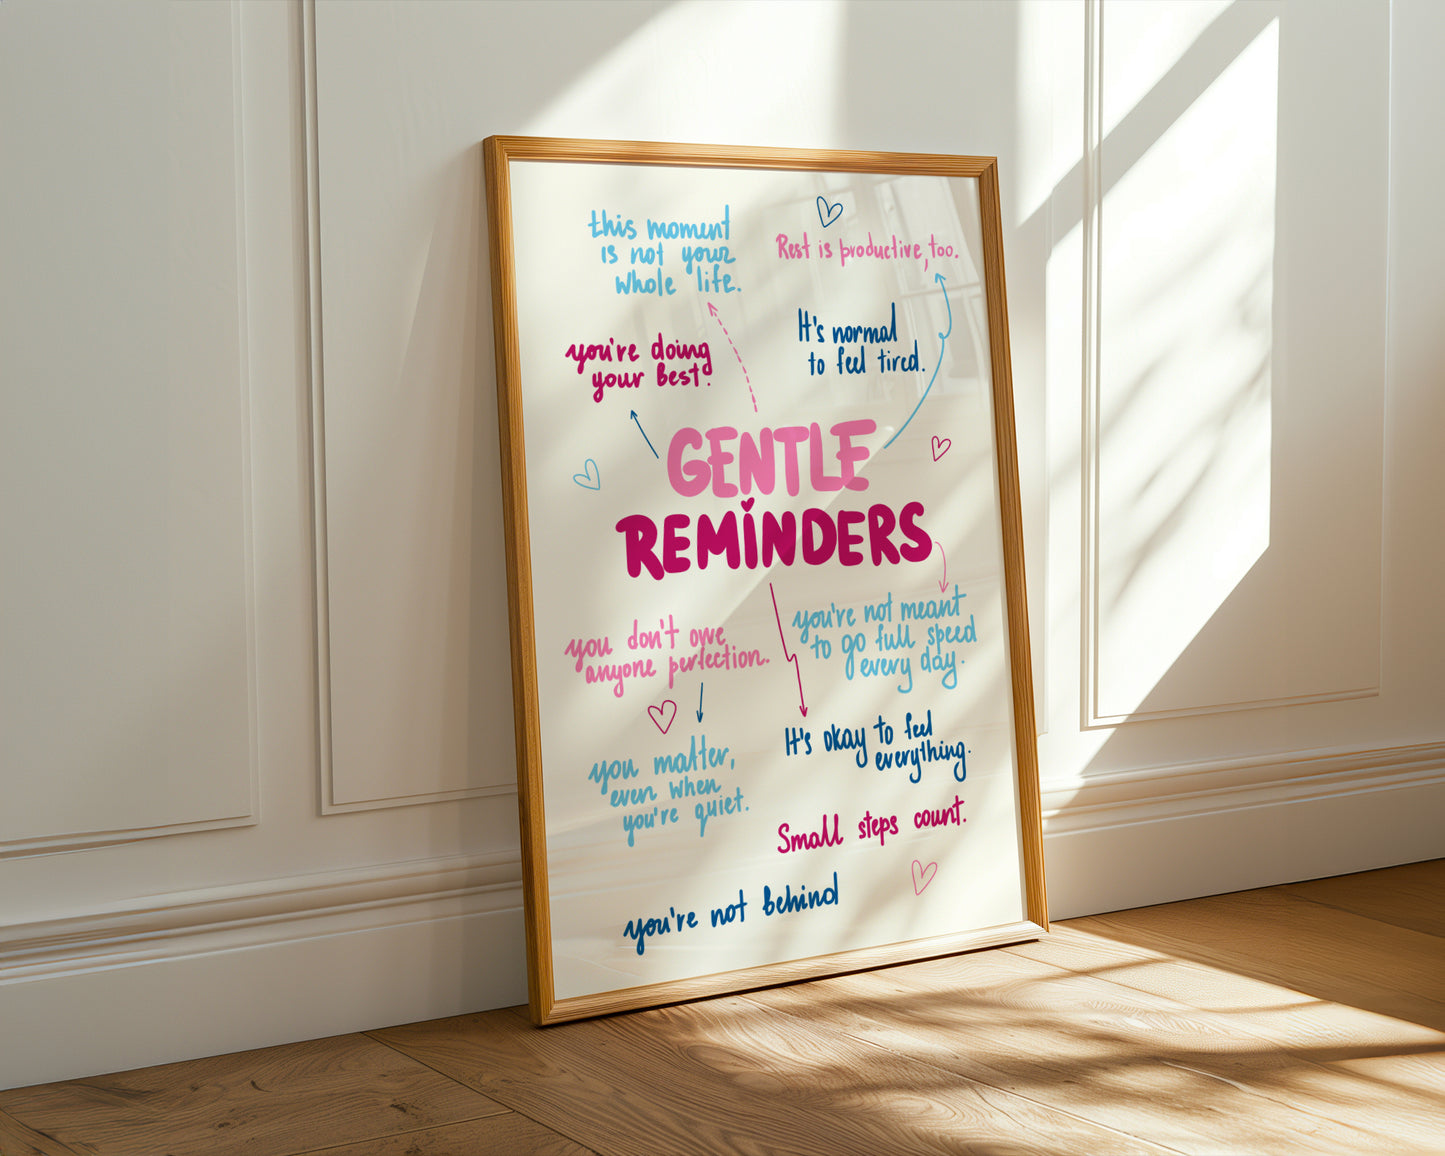 this moment
is not your
whole life.
Rest is productive, too.
It's normal
to feel tired.
you're doing
your best.
GENTLE
REMINDERS
you don't owe
anyone perfection.
you're not meant
to go full speed
every day.
It's okay to feel
everything.
you matter,
even when
you're quiet.
Small steps count.
you're not behind